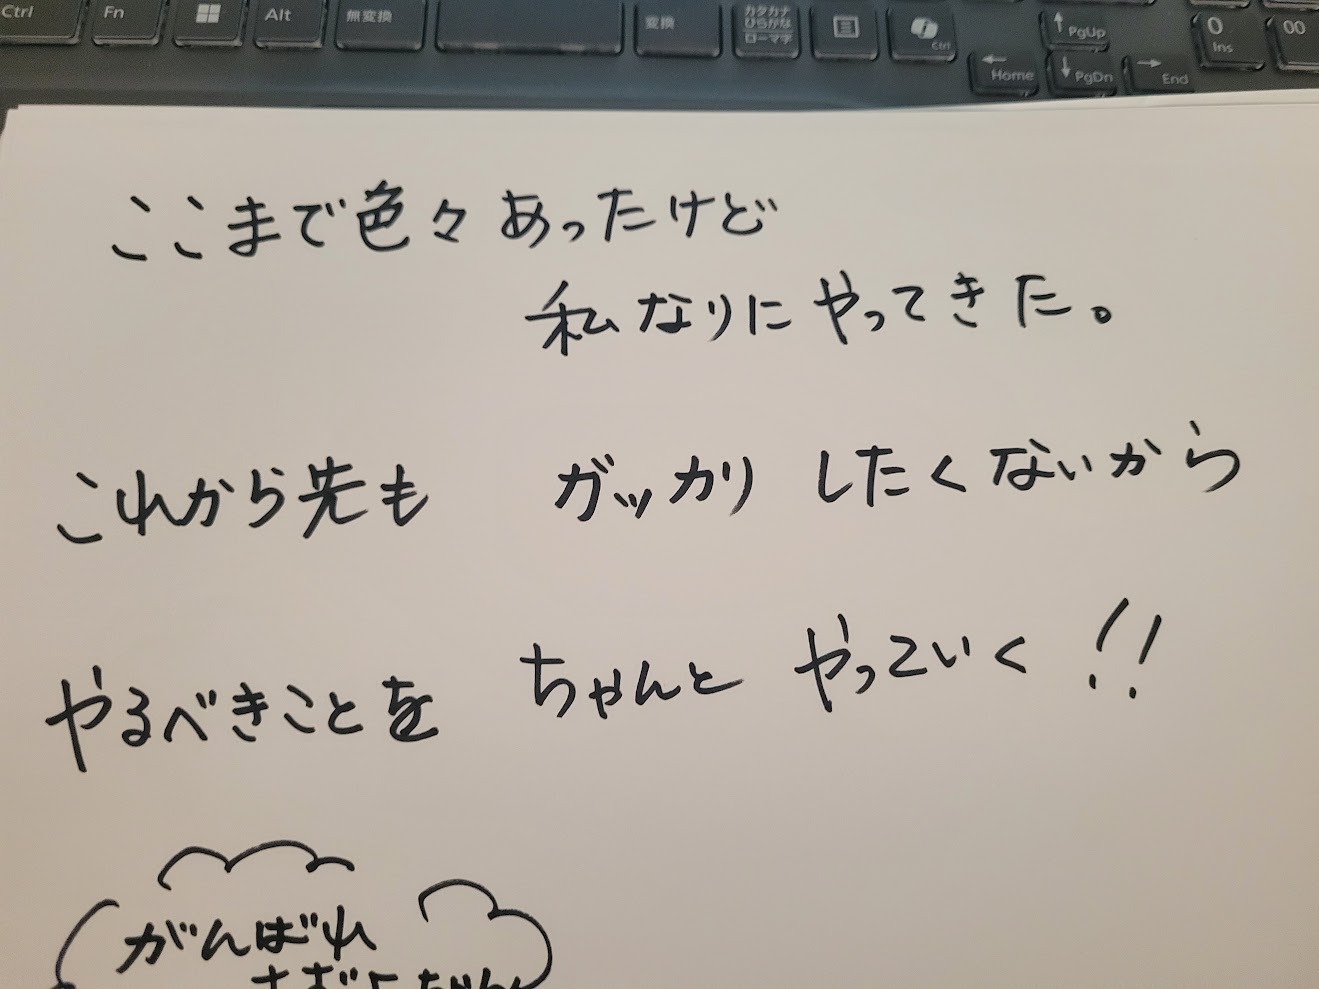 Ctrl Fn Alt 無変換 変換 カタカナ ひらがな ローマ字 Ctrl PgUp 0 Ins 00
Home PgDn End
ここまで色々あったけど
私なりにやってきた。
これから先も ガッカリしたくないから
やるべきことを ちゃんと やっていく!!
がんばれ